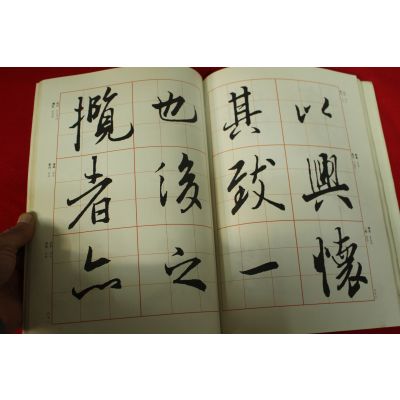 以興懷
其致一
也後之
攬者亦